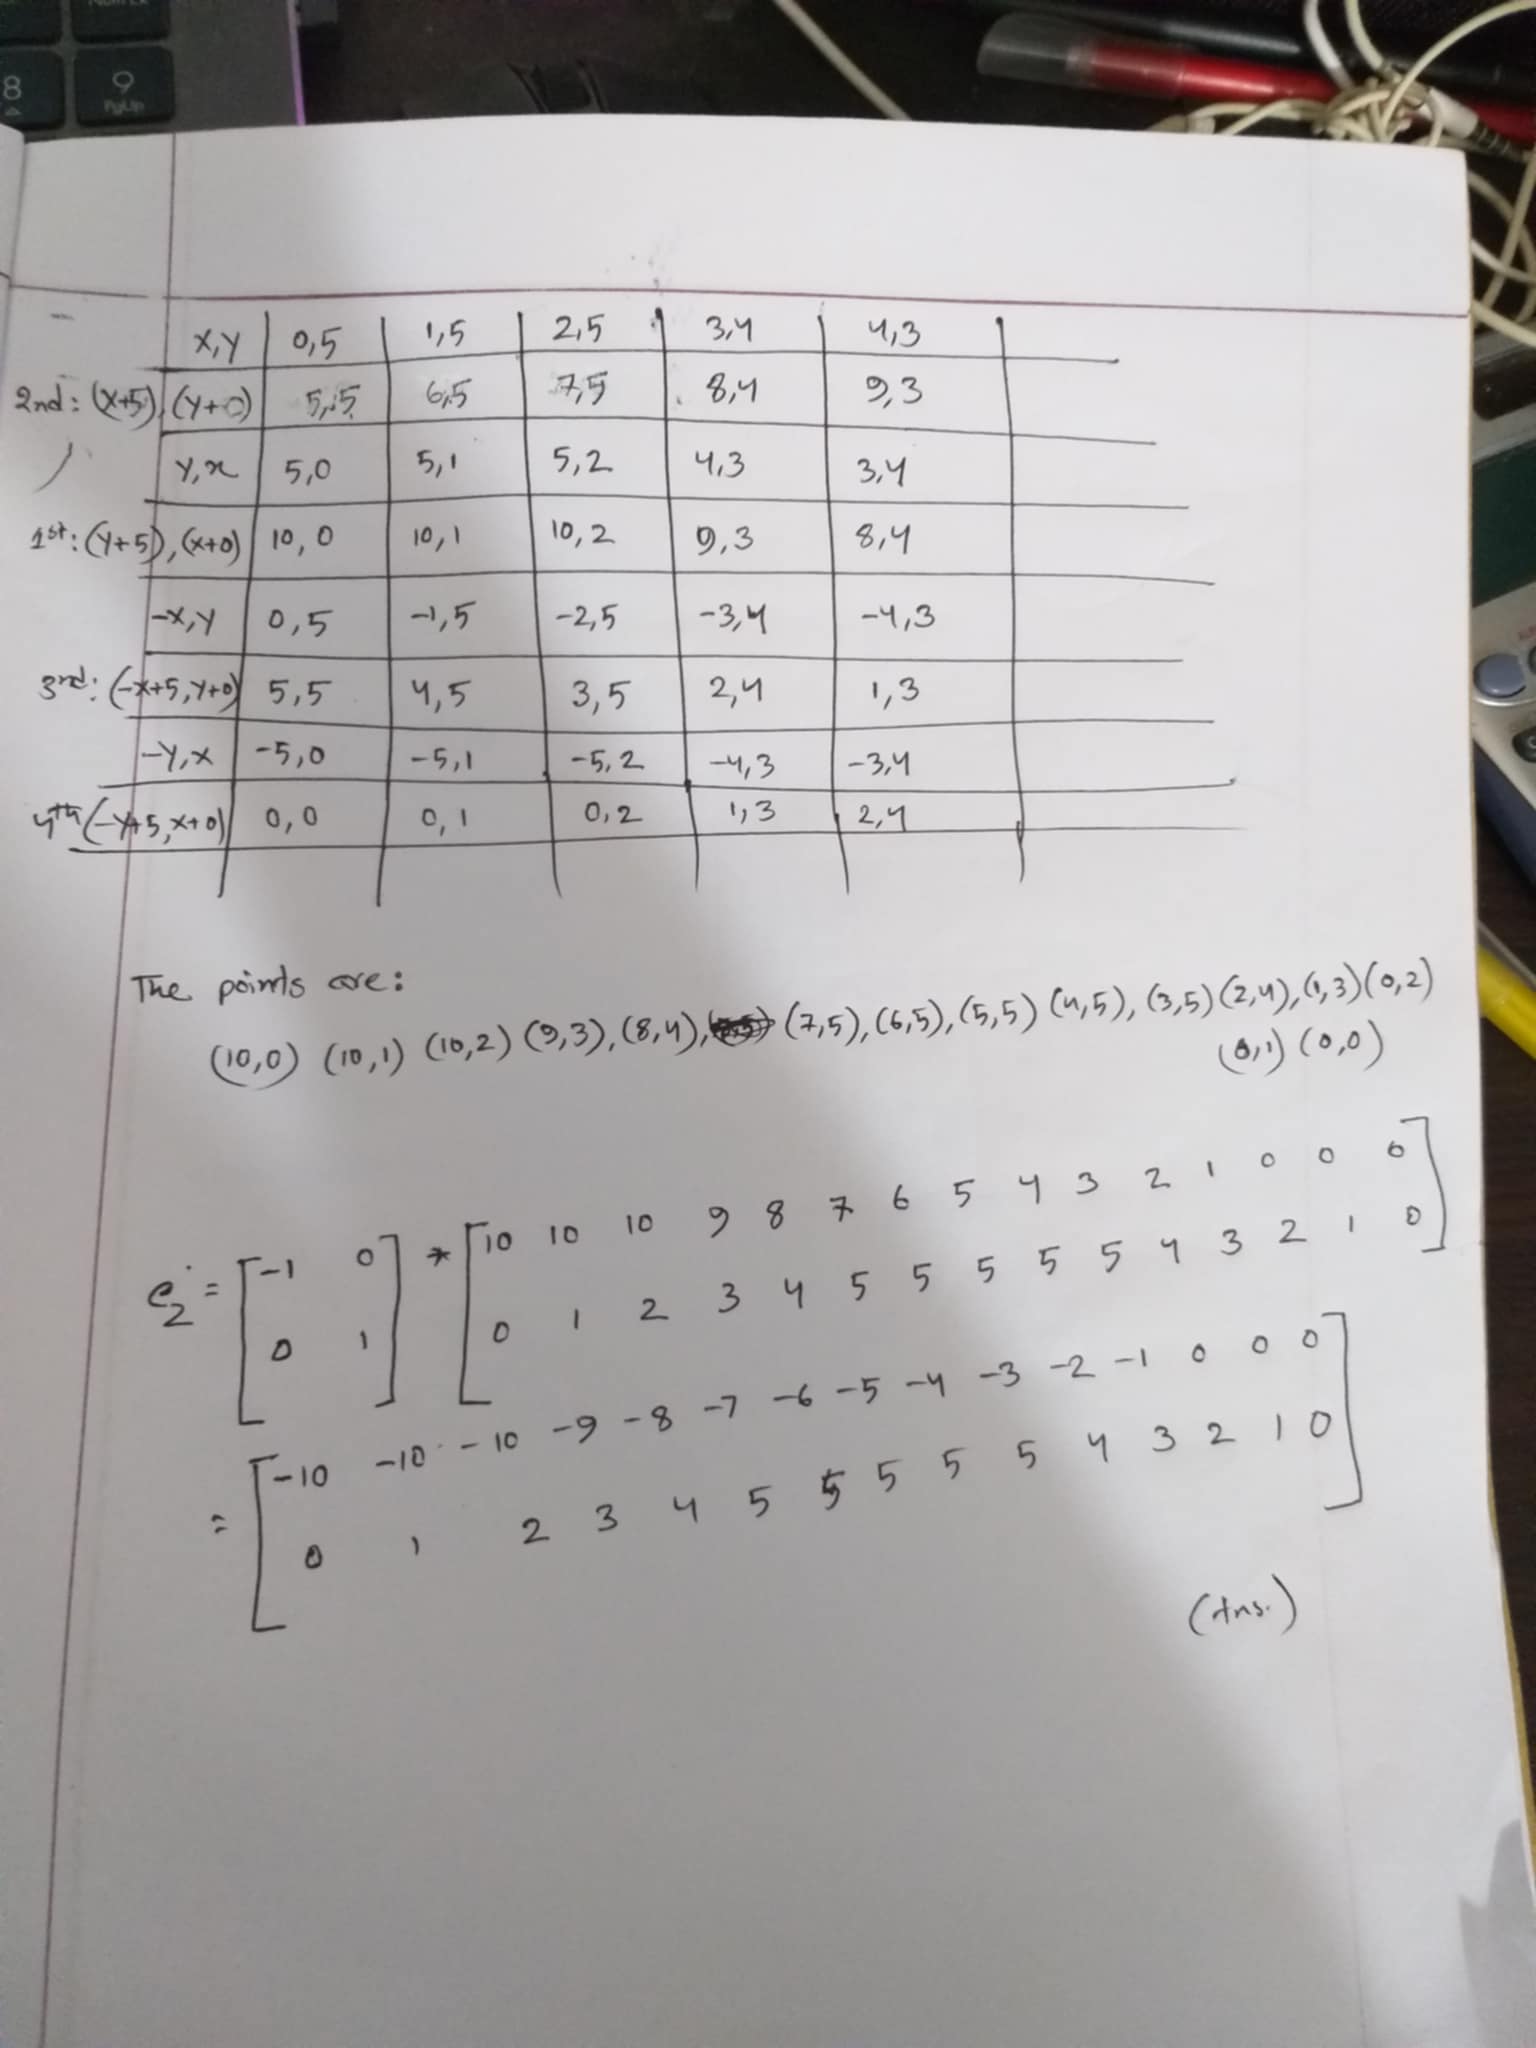 8
9
PgUp
x,y | 0,5 | 1,5 | 2,5 | 3,4 | 4,3
2nd: (x+5), (y+0) | 5,5 | 6,5 | 7,5 | 8,4 | 9,3
y,x | 5,0 | 5,1 | 5,2 | 4,3 | 3,4
1st: (y+5), (x+0) | 10,0 | 10,1 | 10,2 | 9,3 | 8,4
-x,y | 0,5 | -1,5 | -2,5 | -3,4 | -4,3
3rd: (-x+5, y+0) | 5,5 | 4,5 | 3,5 | 2,4 | 1,3
-y,x | -5,0 | -5,1 | -5,2 | -4,3 | -3,4
4th (-y+5, x+0) | 0,0 | 0,1 | 0,2 | 1,3 | 2,4
The points are:
(10,0) (10,1) (10,2) (9,3), (8,4), (7,5), (6,5), (5,5) (4,5), (3,5) (2,4), (1,3) (0,2)
(0,1) (0,0)
[-1 0] * [10 10 10 9 8 7 6 5 4 3 2 1 0 0 0]
e2' =
[0 1] [0 1 2 3 4 5 5 5 5 5 4 3 2 1 0]
= [-10 -10 -10 -9 -8 -7 -6 -5 -4 -3 -2 -1 0 0 0]
[0 1 2 3 4 5 5 5 5 5 4 3 2 1 0]
(Ans.)